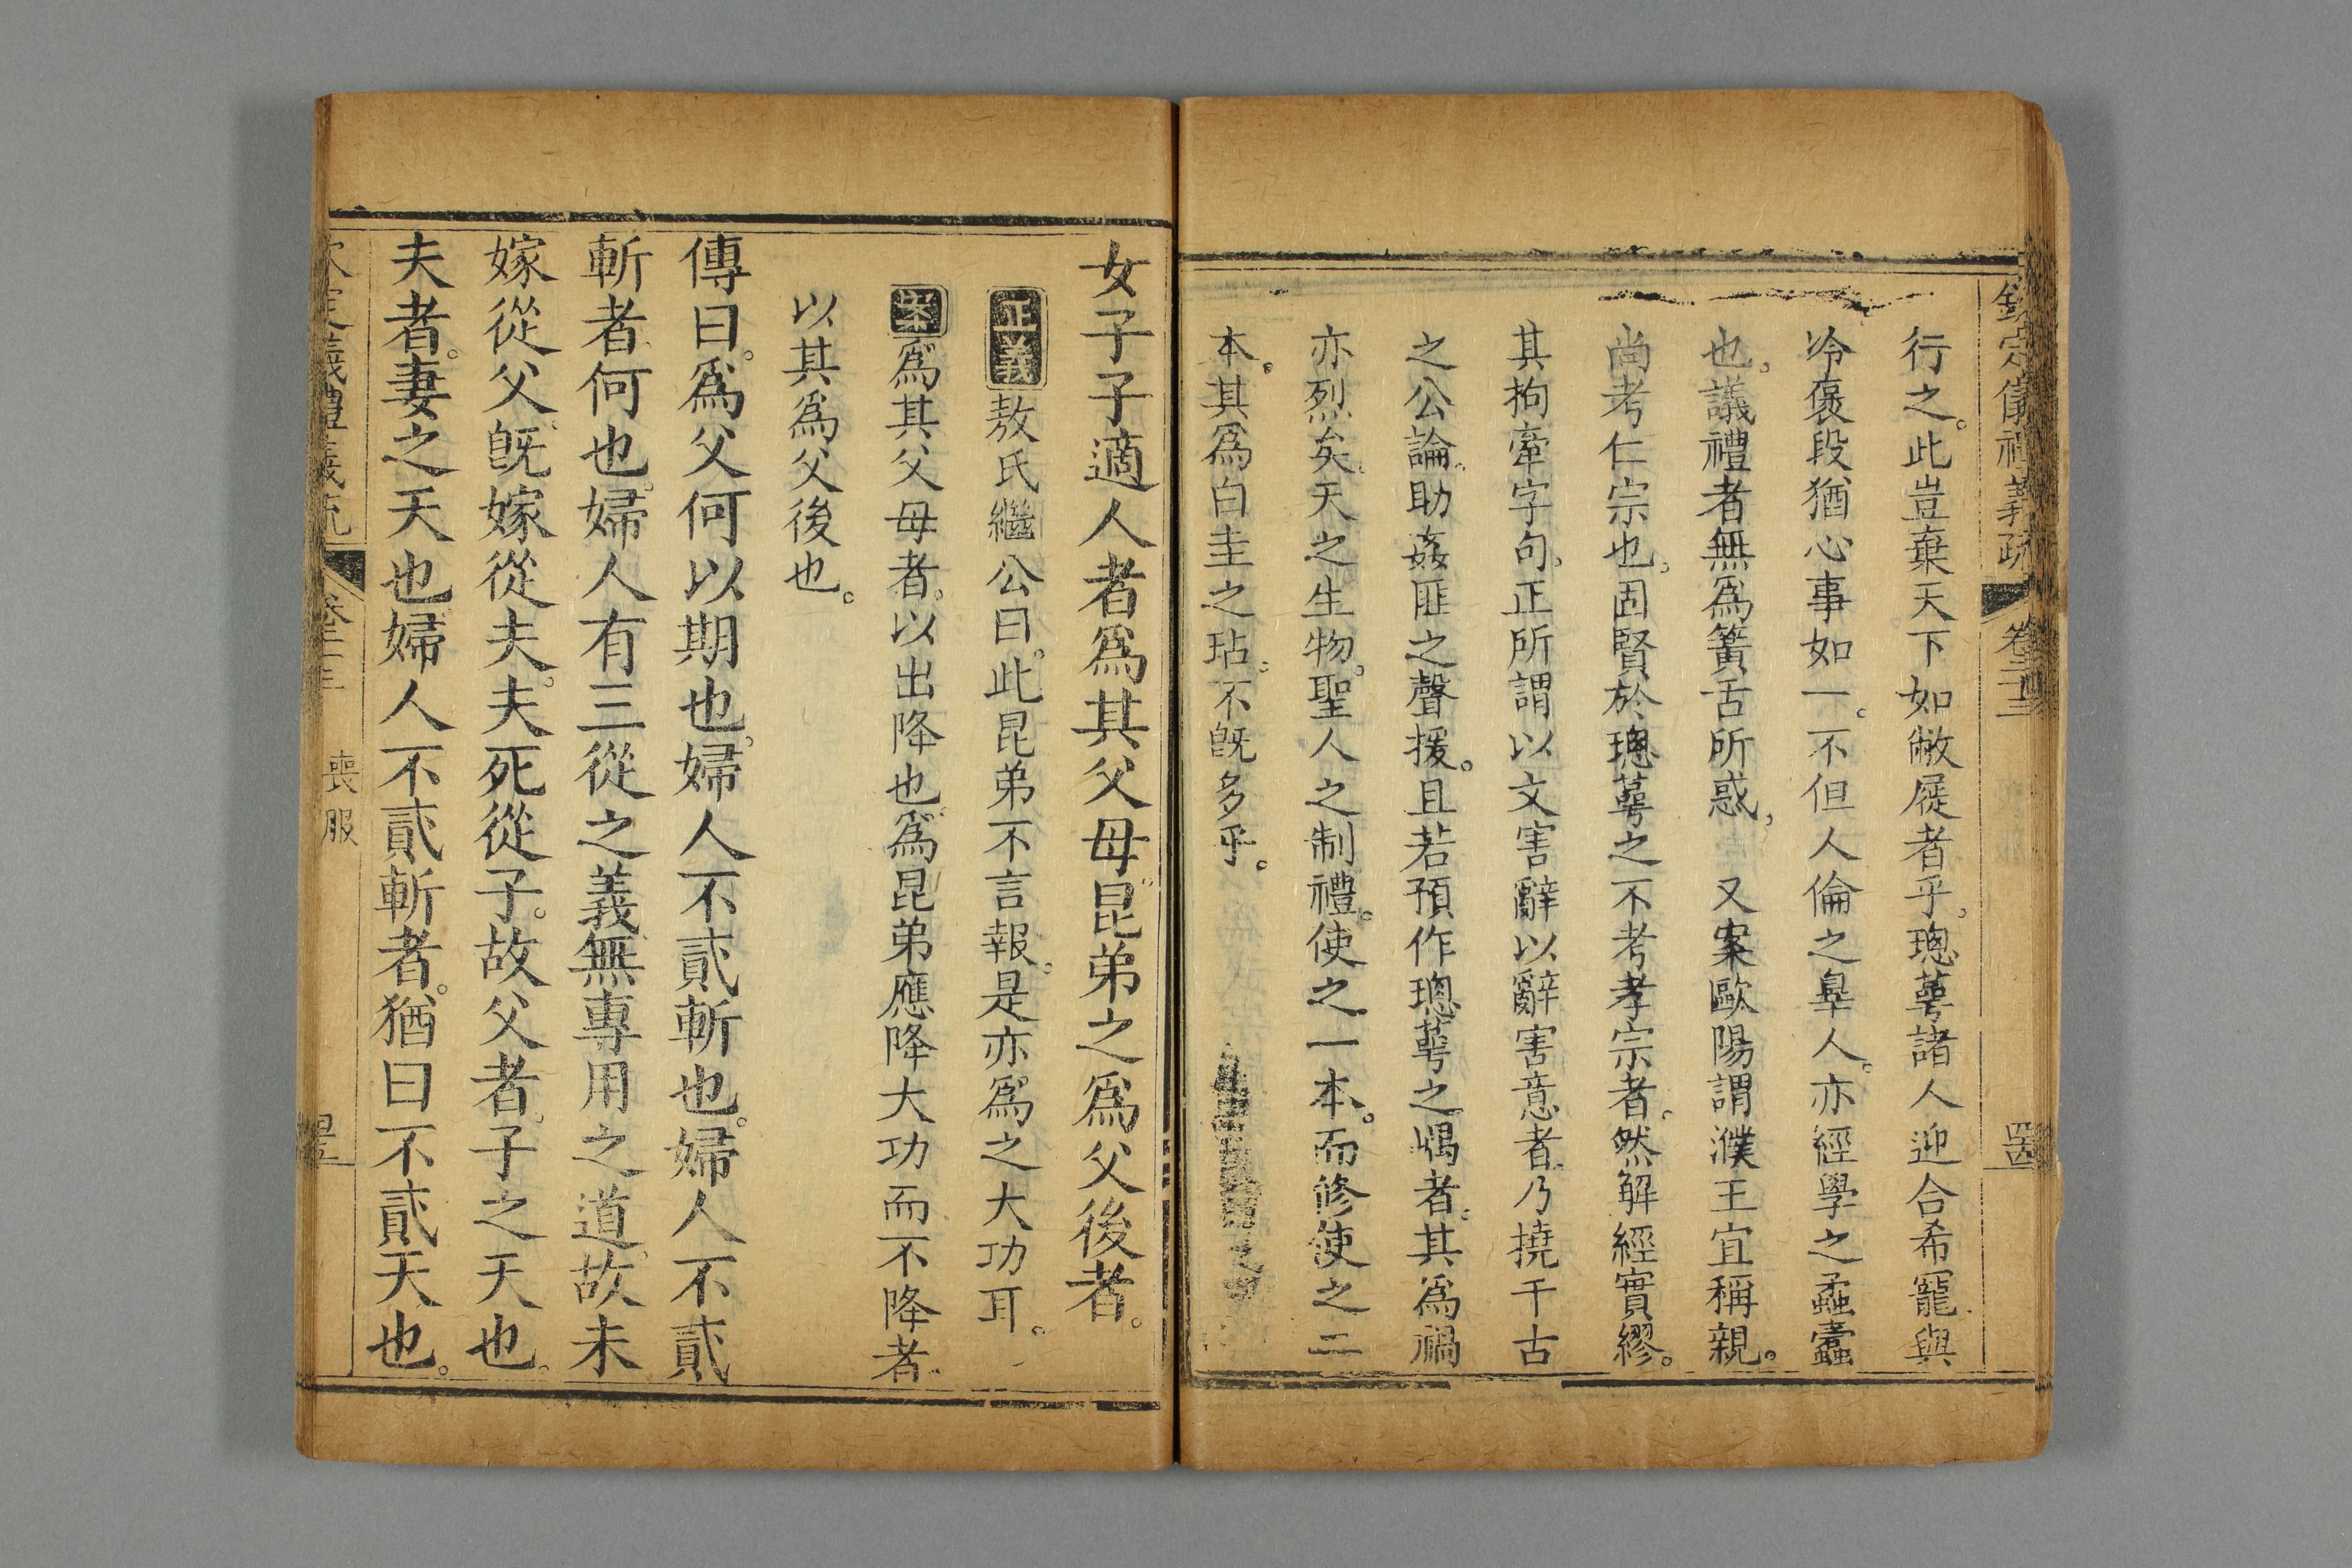 欽定儀禮義疏 卷二十三 四十四
行之。此豈棄天下如敝屣者乎。璁萼諸人迎合希寵與
泠褒段猶心事如一。不但人倫之辠人。亦經學之蟊蠧
也。議禮者無爲簧舌所惑。 又案歐陽謂濮王宜稱親。
尚考仁宗也。固賢於璁萼之不考孝宗者。然解經實繆。
其拘牽字句。正所謂以文害辭以辭害意者。乃撓千古
之公論。助姦匪之聲援。且若預作璁萼之嚆者。其爲禍
亦烈矣。天之生物。聖人之制禮。使之一本。而修使之二
本。其爲白圭之玷。不旣多乎。
女子子適人者爲其父母。昆弟之爲父後者。
正義 敖氏繼公曰。此昆弟不言報。是亦爲之大功耳。
案 爲其父母者。以出降也。爲昆弟應降大功而不降者。
以其爲父後也。
傳曰。爲父何以期也。婦人不貳斬也。婦人不貳
斬者何也。婦人有三從之義。無專用之道。故未
嫁從父。旣嫁從夫。夫死從子。故父者。子之天也。
夫者。妻之天也。婦人不貳斬者。猶曰不貳天也。
義禮義 喪服